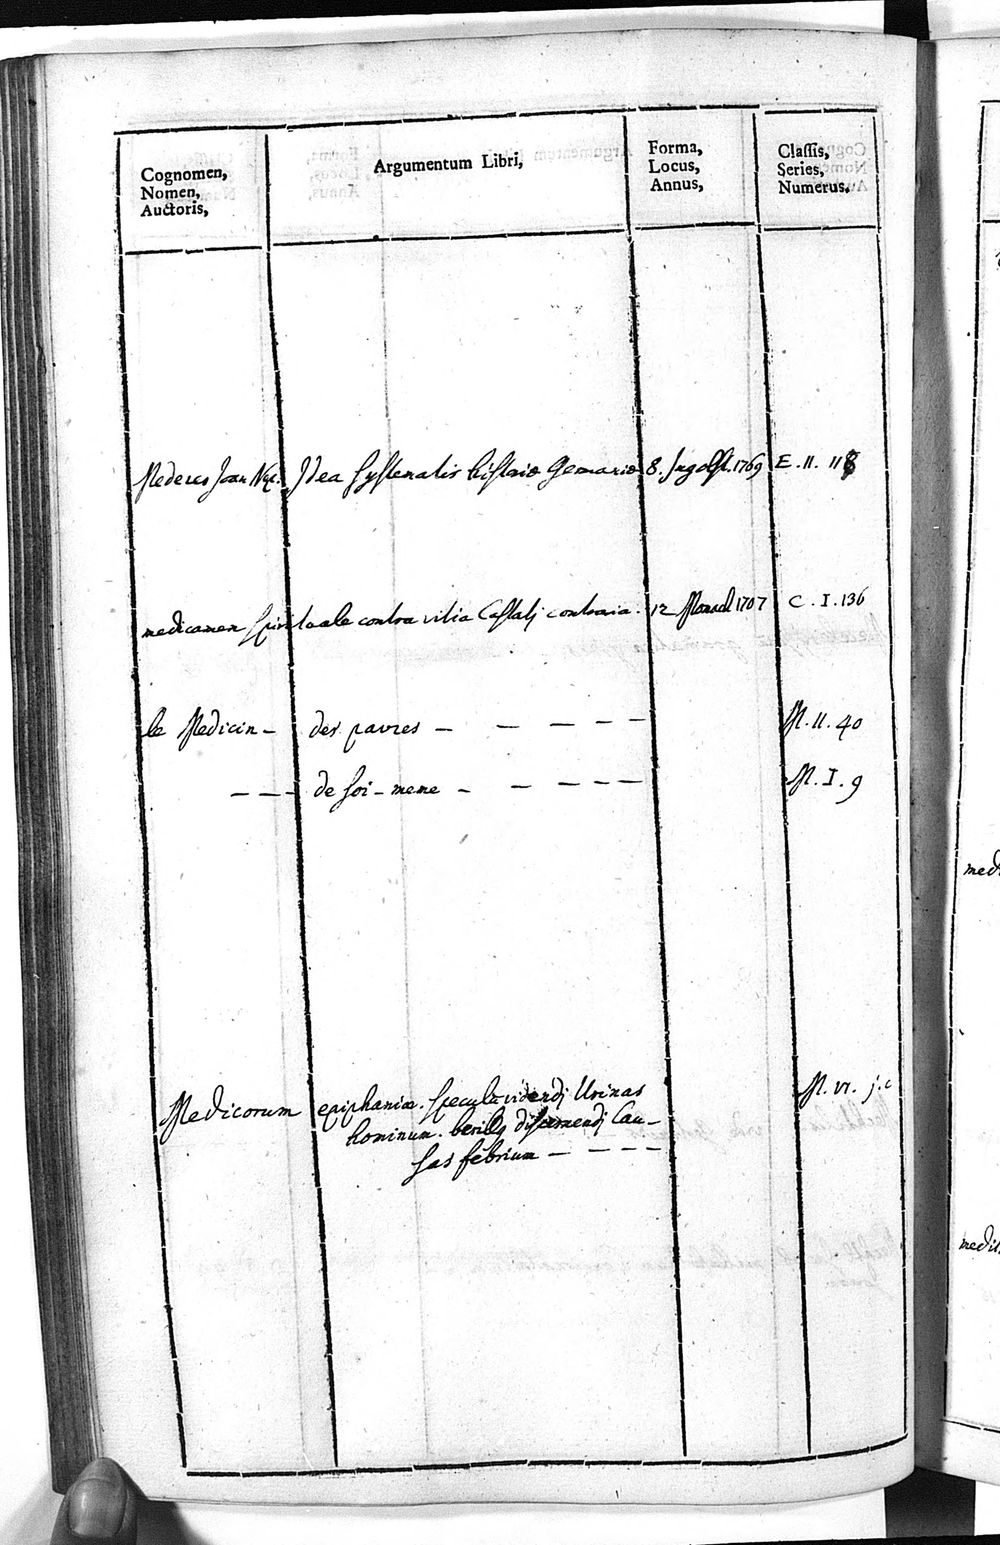 Cognomen,
Nomen,
Auctoris,
Argumentum Libri,
Forma,
Locus,
Annus,
Classis,
Series,
Numerus.
Mederes Joan Nep. Idea Systematis historiæ Germaniæ 8. Ingolst. 1769 E. II. 118
medicamen spirituale contra vitia Castati contraria. 12 Monach 1707 C. I. 136
le Medicin — des pauvres — — — — — M. II. 40
— — — de soi-meme — — — — — M. I. 9
Medicorum epiphaniæ. Specula videndi Urinas M. VI.
hominum. discernendi cau-
sas febrium — — — —
med
medit.